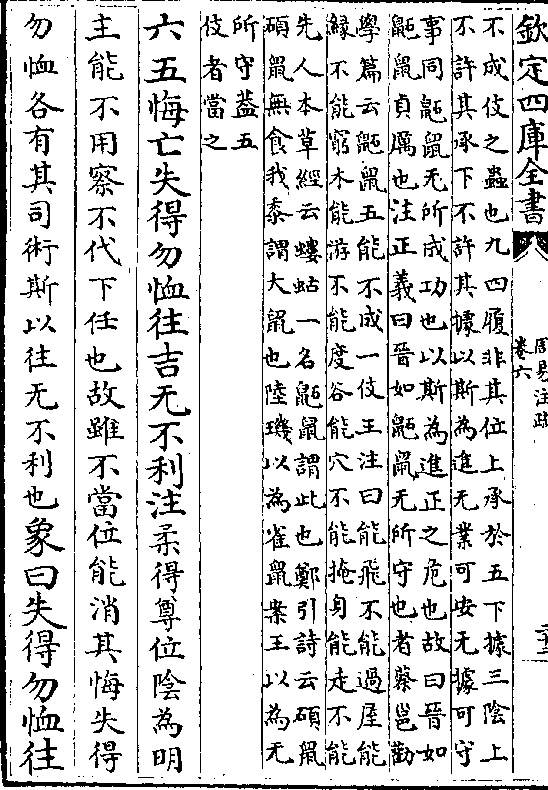 欽定四庫全書
周易注疏
卷六
不成伎之蟲也九四履非其位上承於五下據三陰上
不許其承下不許其據以斯為進无業可安无據可守
事同鼫鼠无所成功也以斯為進正之危也故曰晉如
鼫鼠貞厲也注正義曰晉如鼫鼠无所守也者蔡邕勸
學篇云鼫鼠五能不成一伎王注曰能飛不能過屋能
緣不能窮木能游不能度谷能穴不能掩身能走不能
先人本草經云螻蛄一名鼫鼠謂此也鄭引詩云碩鼠
碩鼠無食我黍謂大鼠也陸璣以為雀鼠案王以為无
所守蓋五
伎者當之
六五悔亡失得勿恤往吉无不利注柔得尊位陰為明
主能不用察不代下任也故雖不當位能消其悔失得
勿恤各有其司術斯以往无不利也象曰失得勿恤往